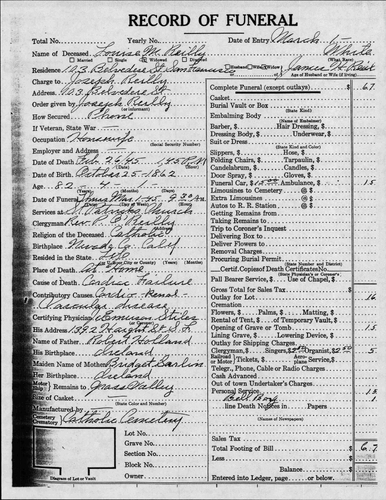 RECORD OF FUNERAL
Total No. Yearly No. Date of Entry March 1-
Name of Deceased Louise M. Reilly White
Married Single Widowed Divorced (What Race)
Residence 123 Belvedere St. San Francisco of James H. Reilly
Charge to Joseph Reilly Age of Husband or Wife (if living)
Address 123 Belvedere St.
Order given by Joseph Reilly
How Secured Phone
If Veteran, State War
Occupation Housewife
(Social Security Number)
Employer and Address
Date of Death Feb. 26 45
Date of Birth October 25 1862
Age 82 - 4 - 1
Date of Funeral Thurs Mar 1-45 9:30 AM
Services at St. Patricks Church
Clergyman Rev. P. G. Reilly
Religion of the Deceased Catholic
Birthplace Nevada Co. Calif
Resided in the State Life
Place of Death At Home
Cause of Death Cardiac Failure
Contributory Causes Cardio-Renal-
Vascular disease
Certifying Physician Emerson Stiles
His Address 1582 Haight St. S.F.
Name of Father Robert Holland
His Birthplace Ireland
Maiden Name of Mother Bridget
Her Birthplace Ireland
Motor Ship Remains to Grass Valley
Size of Casket
(State Color and Number)
Manufactured by
Cemetery Crematory Catholic Cemetery
Lot No.
Grave No.
Section No.
Block No.
Owner
Diagram of Lot or Vault
Complete Funeral (except outlays) $ 67
Casket
Burial Vault or Box
(State Kind)
Embalming Body
(Name of Embalmer)
Barber, $ Hair Dressing, $
Dressing Body, $ Underwear, $
Suit or Dress
(State Kind and Color)
Slippers, $ Hose, $
Folding Chairs, $ Tarpaulin, $
Candelabrum, $ Candles, $
Door Spray, $ Gloves, $
Funeral Car, $15.00 Ambulance, $ 15
Limousines to Cemetery @ $
Extra Limousines @ $
Autos to R. R. Station @ $
Getting Remains from
Taking Remains to
Trip to Coroner's Inquest
Delivering Box to
Deliver Flowers to
Removal Charges
Procuring Burial Permit
(State Number and District)
Certif. Copies of Death Certificates No.
(State Physician's or Coroner's)
Pall Bearer Service, $ Use of Chapel, $
Gross Total for Sales Tax
Outlay for Lot 16
Cremation
Flowers, $ Palms, $ Matting, $
Rental of Tent, $ of Temporary Vault, $
Opening of Grave or Tomb 15
Lining Grave, $ Lowering Device, $
Outlay for Shipping Charges
Clergyman, $ Singers, $2.50 Organist, $2.50 5
Railroad or Motor Tickets, $ Aero-Service, $
Telegr., Phone, Cable or Radio Charges
Cash Advanced
Out of town Undertaker's Charges
Personal Service
line Death Notices in Papers
(Names of Newspapers)
Sales Tax
Total Footing of Bill $ 67
Less
Balance
Entered into Ledger, page or below.